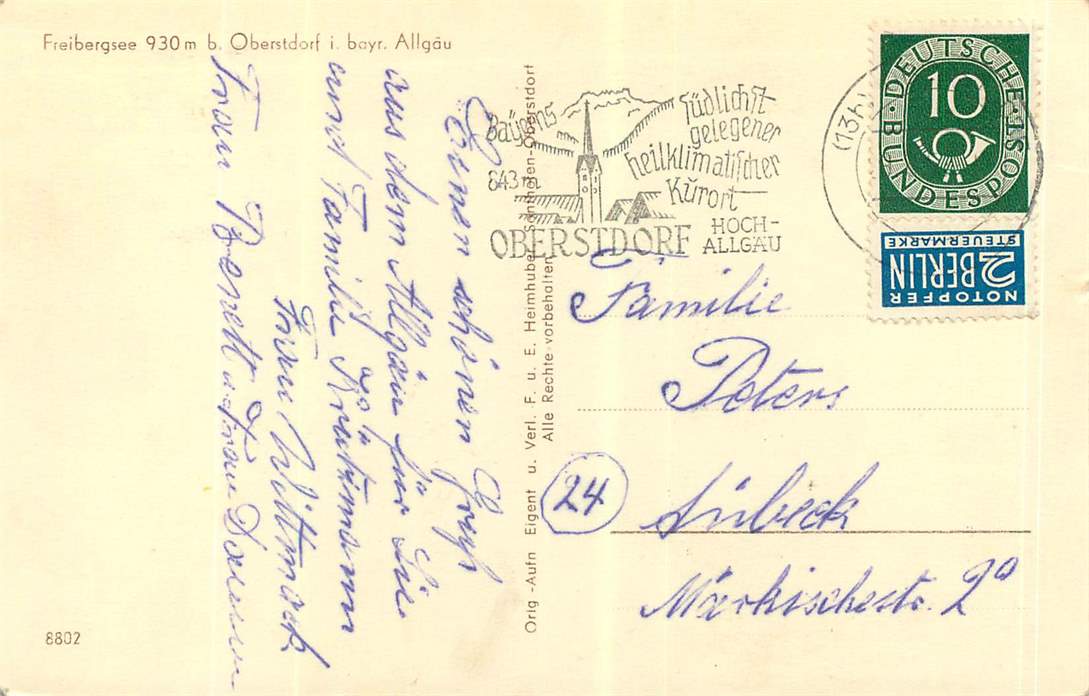 Freibergsee 930 m b. Oberstdorf i. bayr. Allgäu
Einen schönen Gruß
aus dem Allgäu für Sie
und Familie
Frau Wittmack
Frau u. Frau
Orig.-Aufn. Eigent. u. Verl. F. u. E. Heimhuber, Sonthofen-Oberstdorf
Alle Rechte vorbehalten
Bayerns
südlichst
gelegener
heilklimatischer
Kurort
843 m
OBERSTDORF
HOCH-
ALLGÄU
(13b)
DEUTSCHE BUNDESPOST
10
NOTOPFER
2 BERLIN
STEUERMARKE
Familie
Peters
24
Lübeck
Märkischestr. 2a
8802